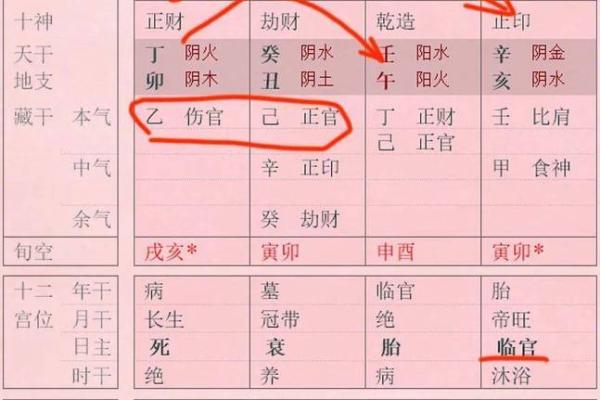 十神 正财 劫财 乾造 正印
天干 丁 阴火 癸 阴水 壬 阳水 辛 阴金
地支 卯 阴木 丑 阴土 午 阳火 亥 阴水
藏干 本气 乙 伤官 己 正官 丁 正财 壬 比肩
己 正官
中气 辛 正印 甲 食神
余气 癸 劫财
旬空 戌亥* 寅卯 申酉 寅卯*
十二 年干 病 墓 临官 胎
宫位 月干 长生 冠带 绝 帝旺
日主 死 衰 胎 临官
时干 绝 养 病 沐浴